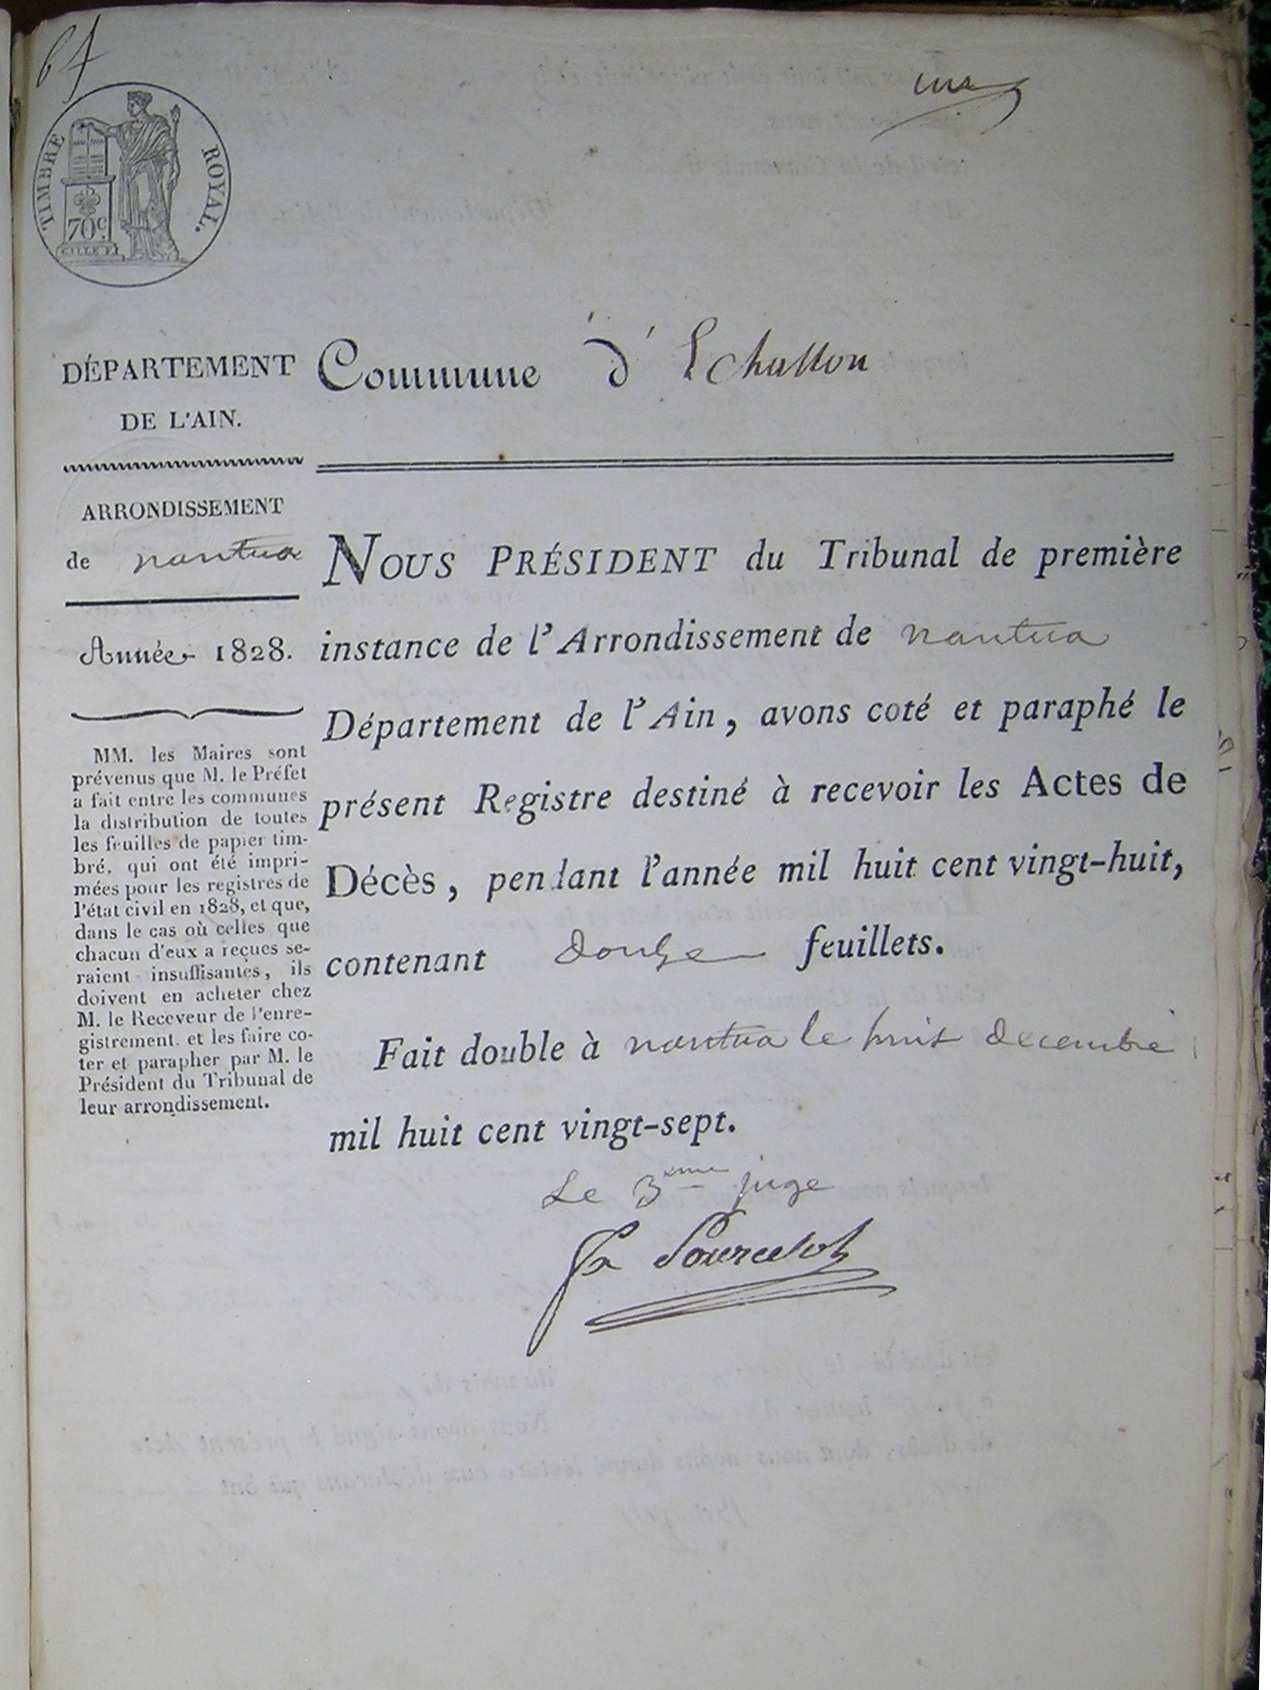 TIMBRE ROYAL.
70c
DÉPARTEMENT
DE L'AIN.
ARRONDISSEMENT
de nantua
Année 1828.
MM. les Maires sont
prévenus que M. le Préfet
a fait entre les communes
la distribution de toutes
les feuilles de papier tim-
bré, qui ont été impri-
mées pour les registres de
l'état civil en 1828, et que,
dans le cas où celles que
chacun d'eux a reçues se-
raient insuffisantes, ils
doivent en acheter chez
M. le Receveur de l'enre-
gistrement, et les faire co-
ter et parapher par M. le
Président du Tribunal de
leur arrondissement.
Commune d' Echallon
NOUS PRÉSIDENT du Tribunal de première
instance de l'Arrondissement de nantua
Département de l'Ain, avons coté et paraphé le
présent Registre destiné à recevoir les Actes de
Décès, pendant l'année mil huit cent vingt-huit,
contenant douze feuillets.
Fait double à nantua le huit decembre
mil huit cent vingt-sept.
Le 3eme juge